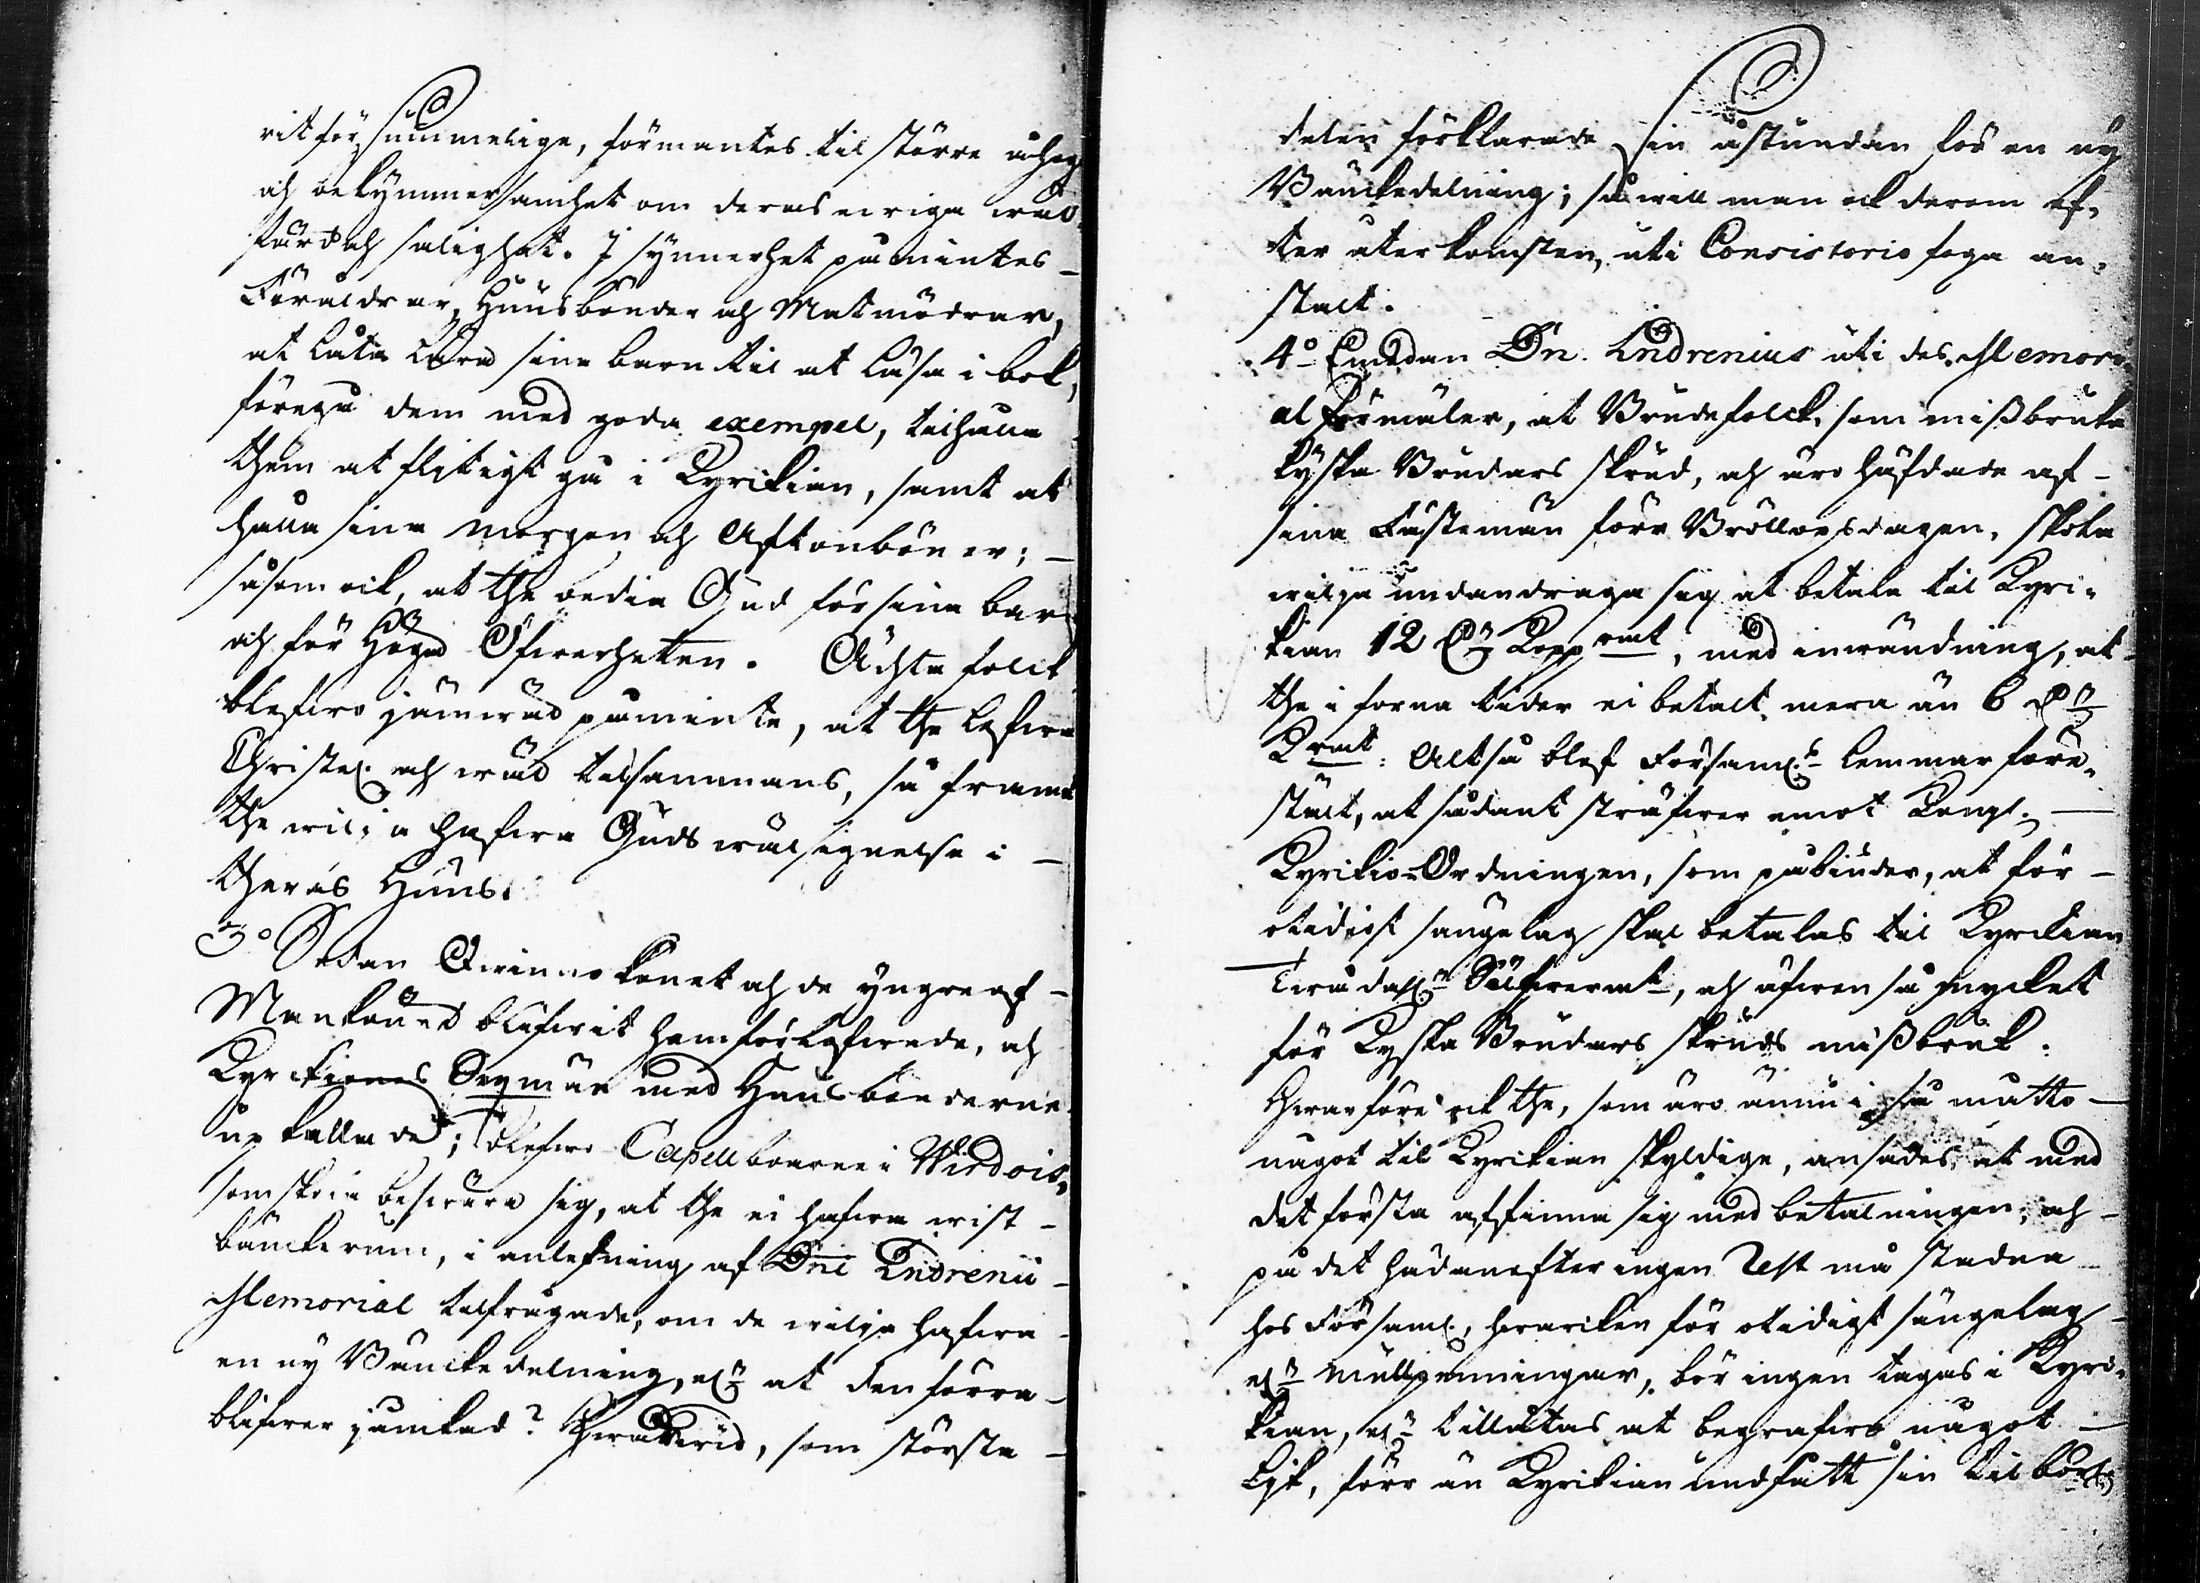 rit försummelige, förmantes til större åhog
och bekymmersamhet om deras ewiga wäl-
färd och salighet. J synnerhet påmintes
Föräldrar, Huusbönder och Matmödrar,
at låta lära sina barn til at läsa i bok,
föregå dem med goda exempel, tilhålla
them at flitigt gå i Kyrckian, samt at
hålla sina morgon och Aftonböner;
såsom ock, at the bedia Gud för sina barn
och för Höga Öfwerheten. Ächta folck
blefwo jämwäl påminte, at the lefwa
Christel. och wäl tilsammans, så framt
the wilja hafwa Guds wälsignelse i
theras Huus.
3:o Sedan Qwinnokönet och de yngre af
Mankönet blifwit hemförlofwade, och
Kyrckiones Sexmän med Huusbönderne
upkallade; blefwo Capellboarne i Wirdois,
som skola beswära sig, at the ei hafwa wist
bänckerum, i anledning af Dni Indrenii
Memorial tilfrågade, om de wilja hafwa
en ny Bänckedelning, elr at den förra
blifwer jämkad? Hwarwid, som största
delen förklarade sin åstundan för en ny
Bänckedelning; så will man ock derom ef-
ter återkomsten, uti Consistorio foga an-
stalt.
4:o Emedan Dn. Indrenius uti des Memori-
al förmäler, at Brudefolck, som missbruka
kyska Brudars skrud, och äro häfdade af
sina Fästemän förr Bröllopsdagen, skola
wilja undandraga sig at betala til Kyri-
kian 12 dr Koppmt, med inwändning, at
the i forna tider ei betalt mera än 6 dr
Kmt: Altså blef Församl:s lemmar före-
stält, at sådant sträfwer emot Kongl.
Kyrkio-Ordningen, som påbiuder, at för
otidigt sängelag skal betalas til Kyrckian
Twå dalr Silfwermt, och äfwen så mycket
för Kyska Brudars skruds missbruk.
Hwarföre ock the, som äro ännu i så måtto
något til Kyrckian skyldige, ansades, at med
det första affinna sig med betalningen, och
på det hädanefter ingen Rest må stadna
hos Församl., hwarcken för otidigt sängelag
elr mullpenningar, bör ingen tagas i Kyri-
kian, elr tillåtas at begrafwa något
Lijk, förr än Kyrkian undfått sin tilbörl.